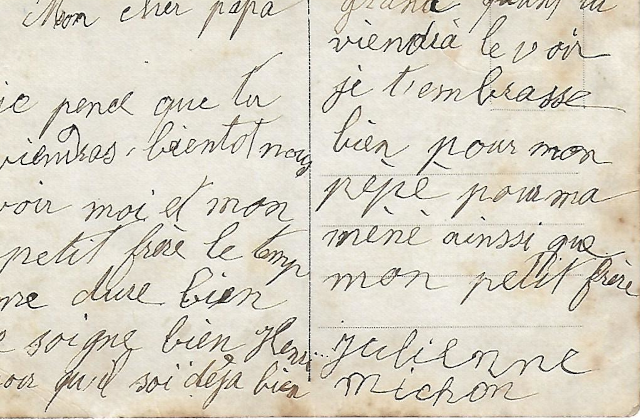 Mon cher papa
je pence que tu
viendras bientot nous
voir moi et mon
petit frère le temp
me dure bien
soigne bien Henri
qu'il soi déja bien
grand quant tu
viendià le voir
je t'embrasse
bien pour mon
pépè pour ma
mèné ainssi que
mon petit frère
julienne
michon